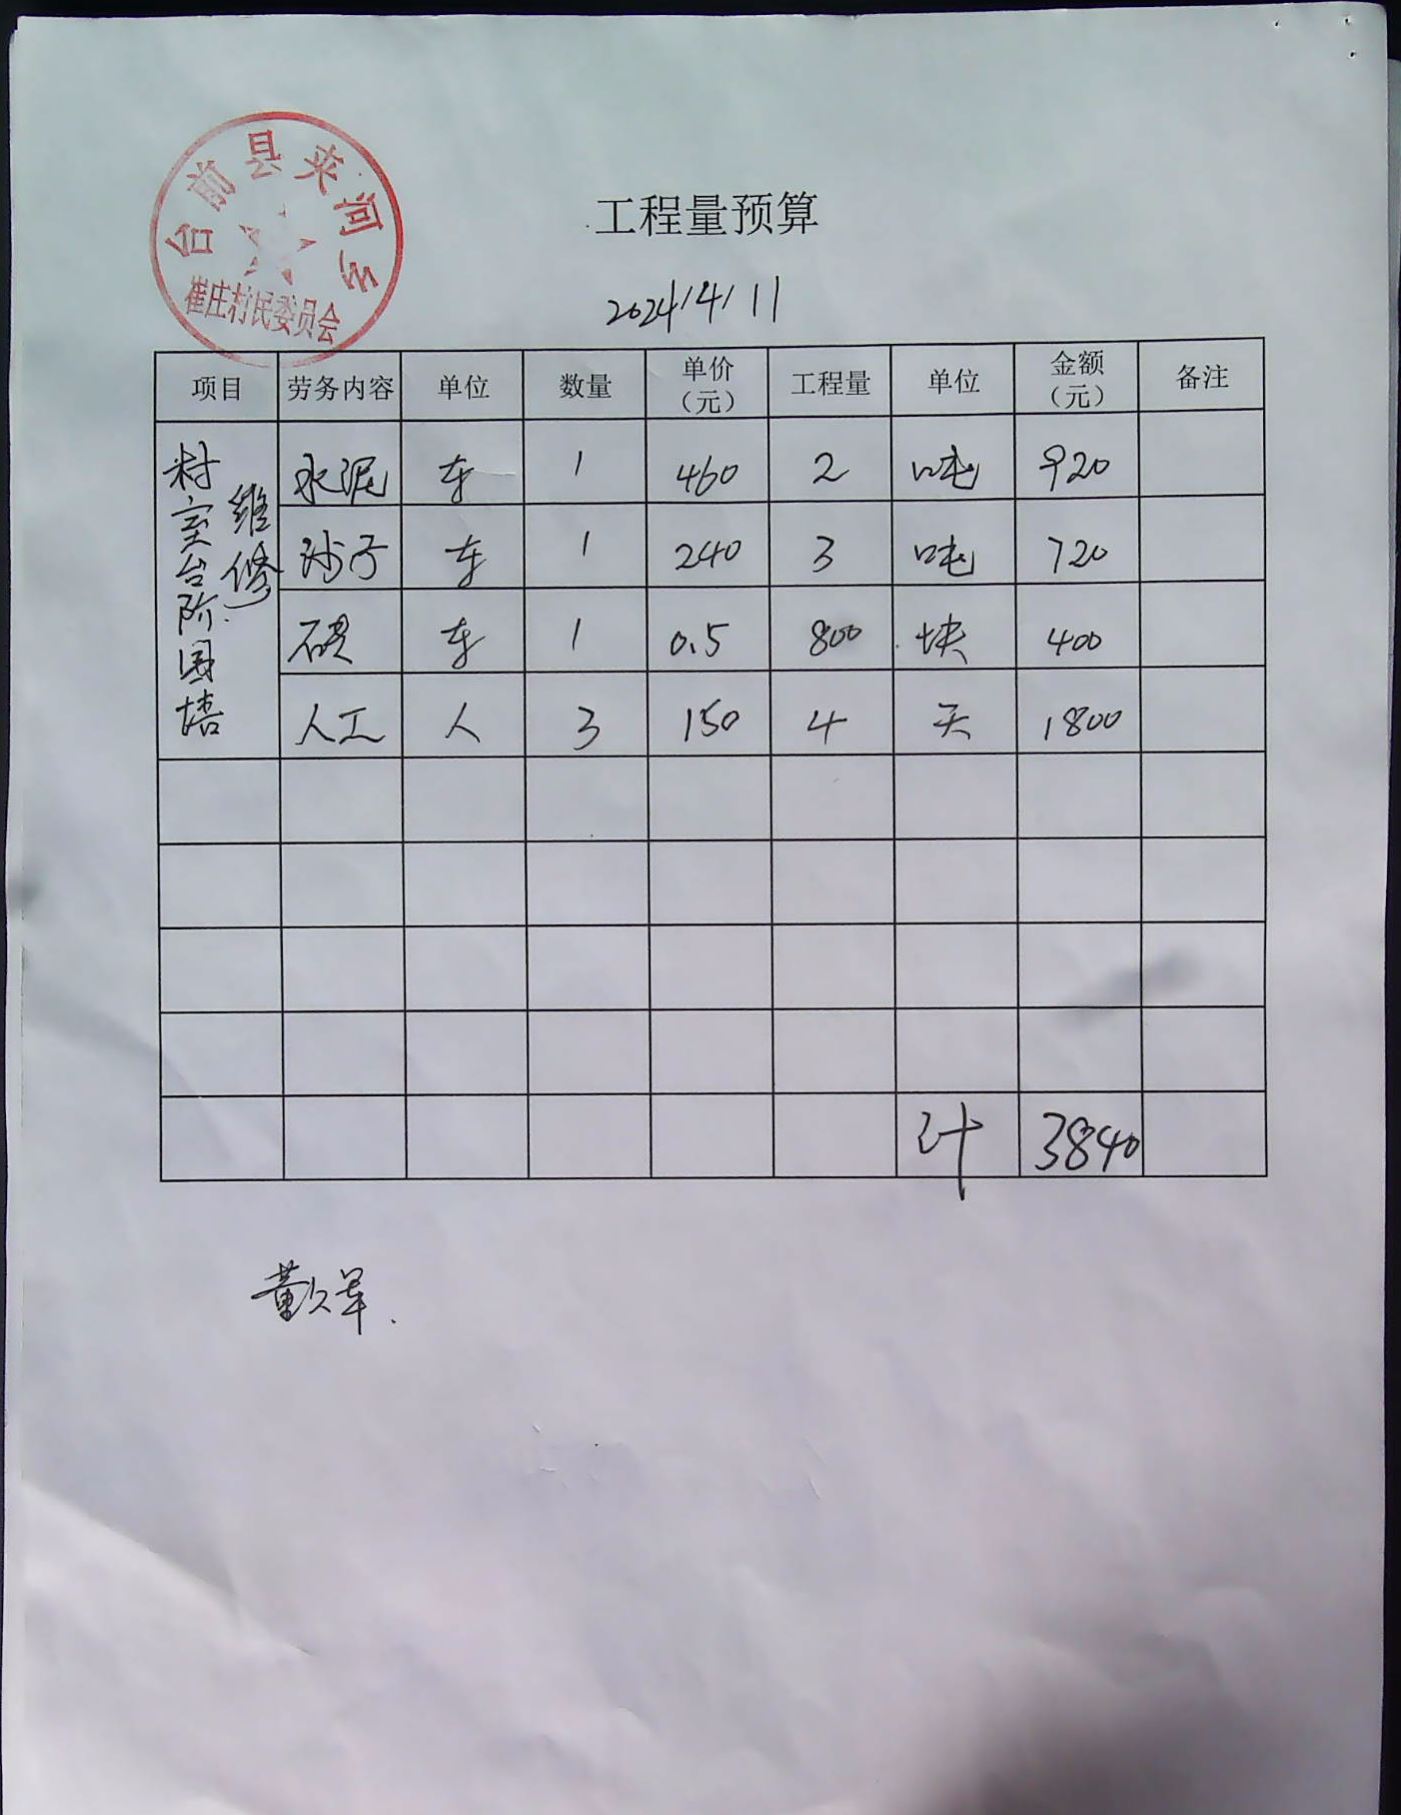 台前县夹河乡
崔庄村民委员会
工程量预算
2024/4/11
项目 劳务内容 单位 数量 单价（元） 工程量 单位 金额（元） 备注
村室台阶围墙维修
水泥 车 1 460 2 吨 920
沙子 车 1 240 3 吨 720
砖 车 1 0.5 800 块 400
人工 人 3 150 4 天 1800
计 3840